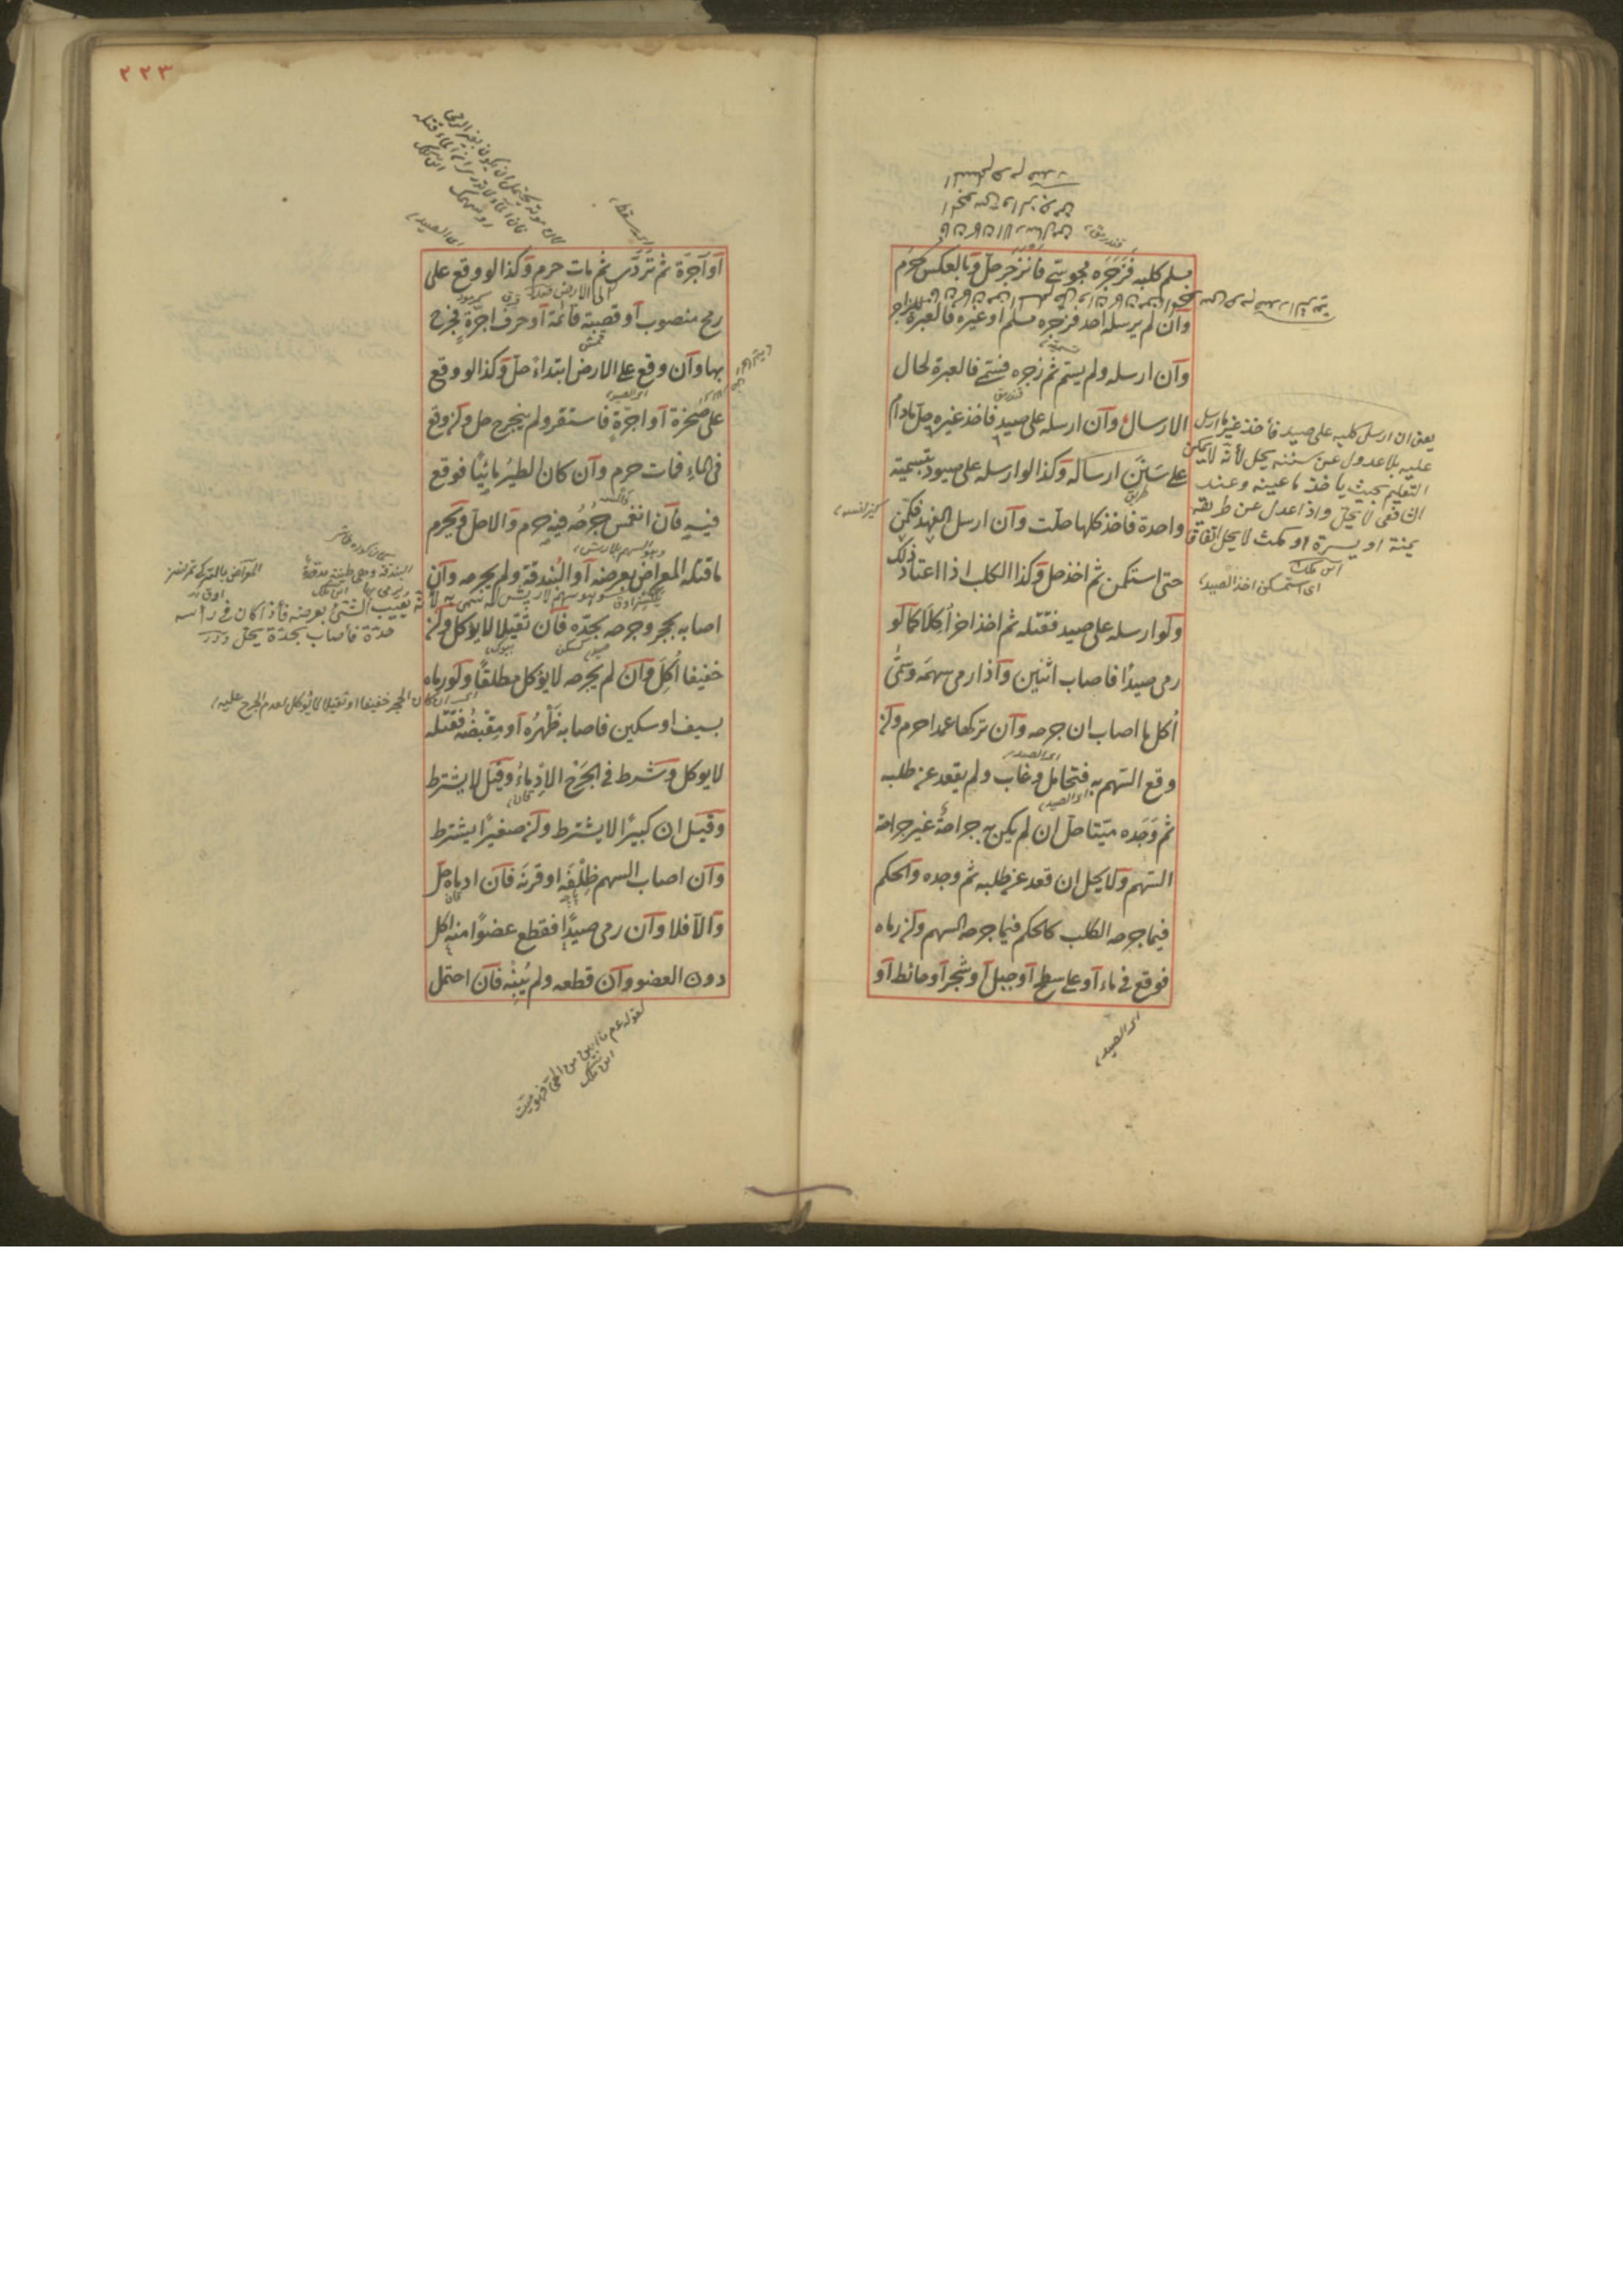 مسلم كلبه فَزَجَرَه مجوسى فانزجر حل وبالعكس حرم
وان لم يرسله احد فزجره مسلم او غيره فالعبرة للزاجر
وان ارسله ولم يسم ثم زجره فسمى فالعبرة لحال
الارسال وان ارسله على صيد فاخذ غيره حل مادام
على سَنَنِ ارساله وكذا لو ارسله على صيود بتسمية
واحدة فاخذ كلها حلت وان ارسل الفهد فكمن
حتى استكمن ثم اخذ حل وكذا الكلب اذا اعتاد ذلك
ولو ارسله على صيد فقتله ثم اخذ اخر اُكِلَا كما لو
رمى صيدًا فاصاب اثنين واذا رمى سهمه وسَمَّى
اُكل ما اصاب ان جرحه وان تركها عمدا حرم وان
وقع السهم به فتحامل وغاب ولم يقعد عن طلبه
ثم وَجَده ميتا حل ان لم يكن به جراحة غير جراحة
السهم ولا يحل ان قعد عن طلبه ثم وجده والحكم
فيما جرحه الكلب كالحكم فيما جرحه السهم وان رماه
فوقع فى ماء او على سطح او جبل او شجر او حائط او
يعنى ان ارسل كلبه على صيد فأخذ غير ما ارسل
عليه بلا عدول عن سننه يحل لأنه لا يمكن
التعليم بحيث يأخذ ما عينه وعند
الشافعى لا يحل واذا عدل عن طريقه
يمنة او يسرة او مكث لا يحل اتفاقا
ابن ملك
اى استمسكن اخذ الصيد
اى الصيد
اى الصيد
اى الصيد
٢٢٣
اى سقط
اى الصيد
او آجرة ثم تَرَدَّى ثم مات حرم وكذا لو وقع على
الى الارض
رمح منصوب او قصبة قائمة او حرف اجرةٍ فجرح
بها وان وقع على الارض ابتداءً حل وكذا لو وقع
اى الصيد
على صخرة او اجرّةٍ فاستقر ولم ينجرح حل وان وقع
فى الماءِ فمات حرم وان كان الطيرُ مائيًا فوقع
فيه فان انغمس جُرحُه فيه حرم والا حل ويحرم
ما قتله المعراض بعرضه او البُندقة ولم يجرحه وان
اصابه بحجر وجرحه بحدّه فان ثقيلا لا يؤكل وان
خفيفا اُكِلَ وان لم يجرحه لا يؤكل مطلقًا ولو رماه
اى ان كان الحجر خفيفا او ثقيلا لا يؤكل لعدم الجرح عليه
بسيف او سكين فاصابه ظَهْرُه او مِقْبَضُه فَقَتَله
لا يوكل وشرط فى الجَرْحِ الادماءُ وقيل لا يشترط
وقيل ان كبيرًا لا يشترط وان صغيرًا يشترط
وان اصاب السهم ظِلْفَه او قرنَه فان ادماه حل
والا فلا وان رمى صيدًا فقطع عضوًا منه اكل
دون العضو وان قطعه ولم يُبِنْه فان احتمل
البندقة وهى طينة مدوّرة
يرمى بها ابن ملك
يصيب الشئ بعرضه فأذا كان فى رأسه
حدّة فأصاب بحدّة يحل درر
لقوله عم ما ابين من الحى فهو ميت
ابن ملك